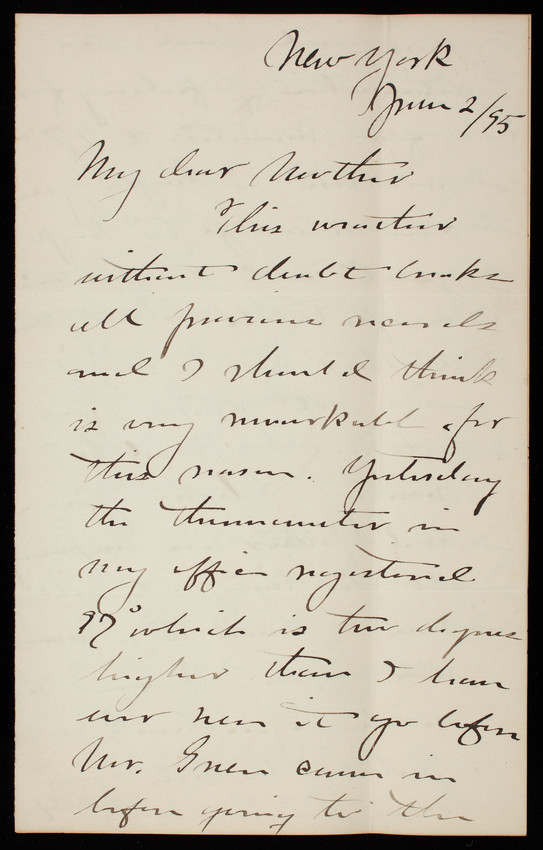 New York
June 2/95
My dear Mother
This weather
without doubt breaks
all previous records
and I should think
is very remarkable for
this season. Yesterday
the thermometer in
my office registered
97° which is two degrees
higher than I have
ever seen it go before
Mr. Green came in
before going to the